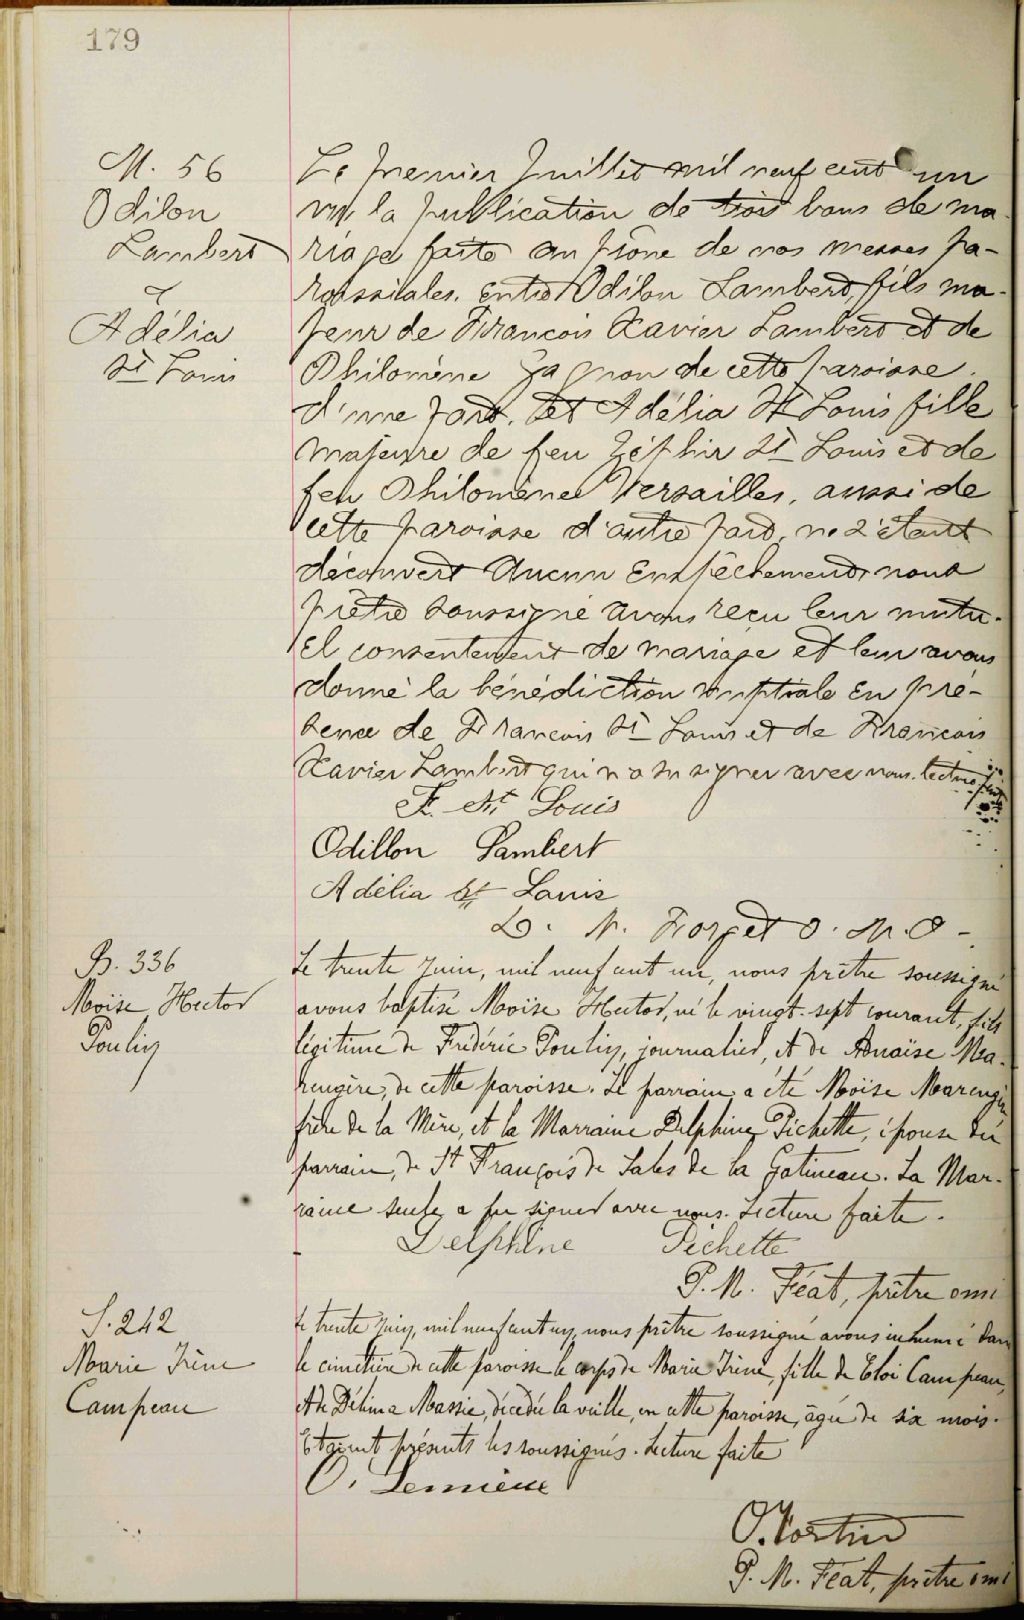 179
M. 56
Odilon
Lambert
&
Adélia
St Louis
Le premier Juillet mil neuf cent un
vu la publication de trois bans de ma-
riage faite au prône de nos messes pa-
roissiales. entre Odilon Lambert, fils ma-
jeur de Francois Xavier Lambert et de
Philomène Gagnon de cette paroisse.
d'une part. et Adélia St Louis fille
majeure de feu Zéphir St Louis et de
feu Philomène Versailles, aussi de
cette paroisse d'autre part, ne s'étant
découvert aucun Empêchement, nous
prêtre soussigné avons reçu leur mutu-
el consentement de mariage et leur avons
donné la bénédiction nuptiale En pré-
sence de Francois St Louis et de Francois
Xavier Lambert qui n'a su signer avec nous. lecture faite
F. St. Louis
Odillon Lambert
Adélia St Louis
L. N. Forget O. M. I -
B. 336
Moïse Hector
Poulin
Le trente Juin, mil neuf cent un, nous prêtre soussigné
avons baptisé Moïse Hector, né le vingt-sept courant, fils
légitime de Frédéric Poulin, journalier, et de Anaïse Ma-
rengère, de cette paroisse. Le parrain a été Moïse Marengère
frère de la Mère, et la Marraine Delphine Pichette, épouse du
parrain, de St François de Sales de la Gatineau. La Mar-
raine seule a pu signer avec nous. Lecture faite.
Delphine Pichette
P. M. Féat, prêtre omi
S. 242
Marie Irène
Campeau
Le trente Juin, mil neuf cent un, nous prêtre soussigné avons inhumé dans
le cimetière de cette paroisse le corps de Marie Irène, fille de Eloi Campeau,
et de Délima Massie, décédée la veille, en cette paroisse, âgée de six mois.
Etaient présents les soussignés. Lecture faite
O. Lemieux
O. Fortin
P. M. Féat, prêtre omi